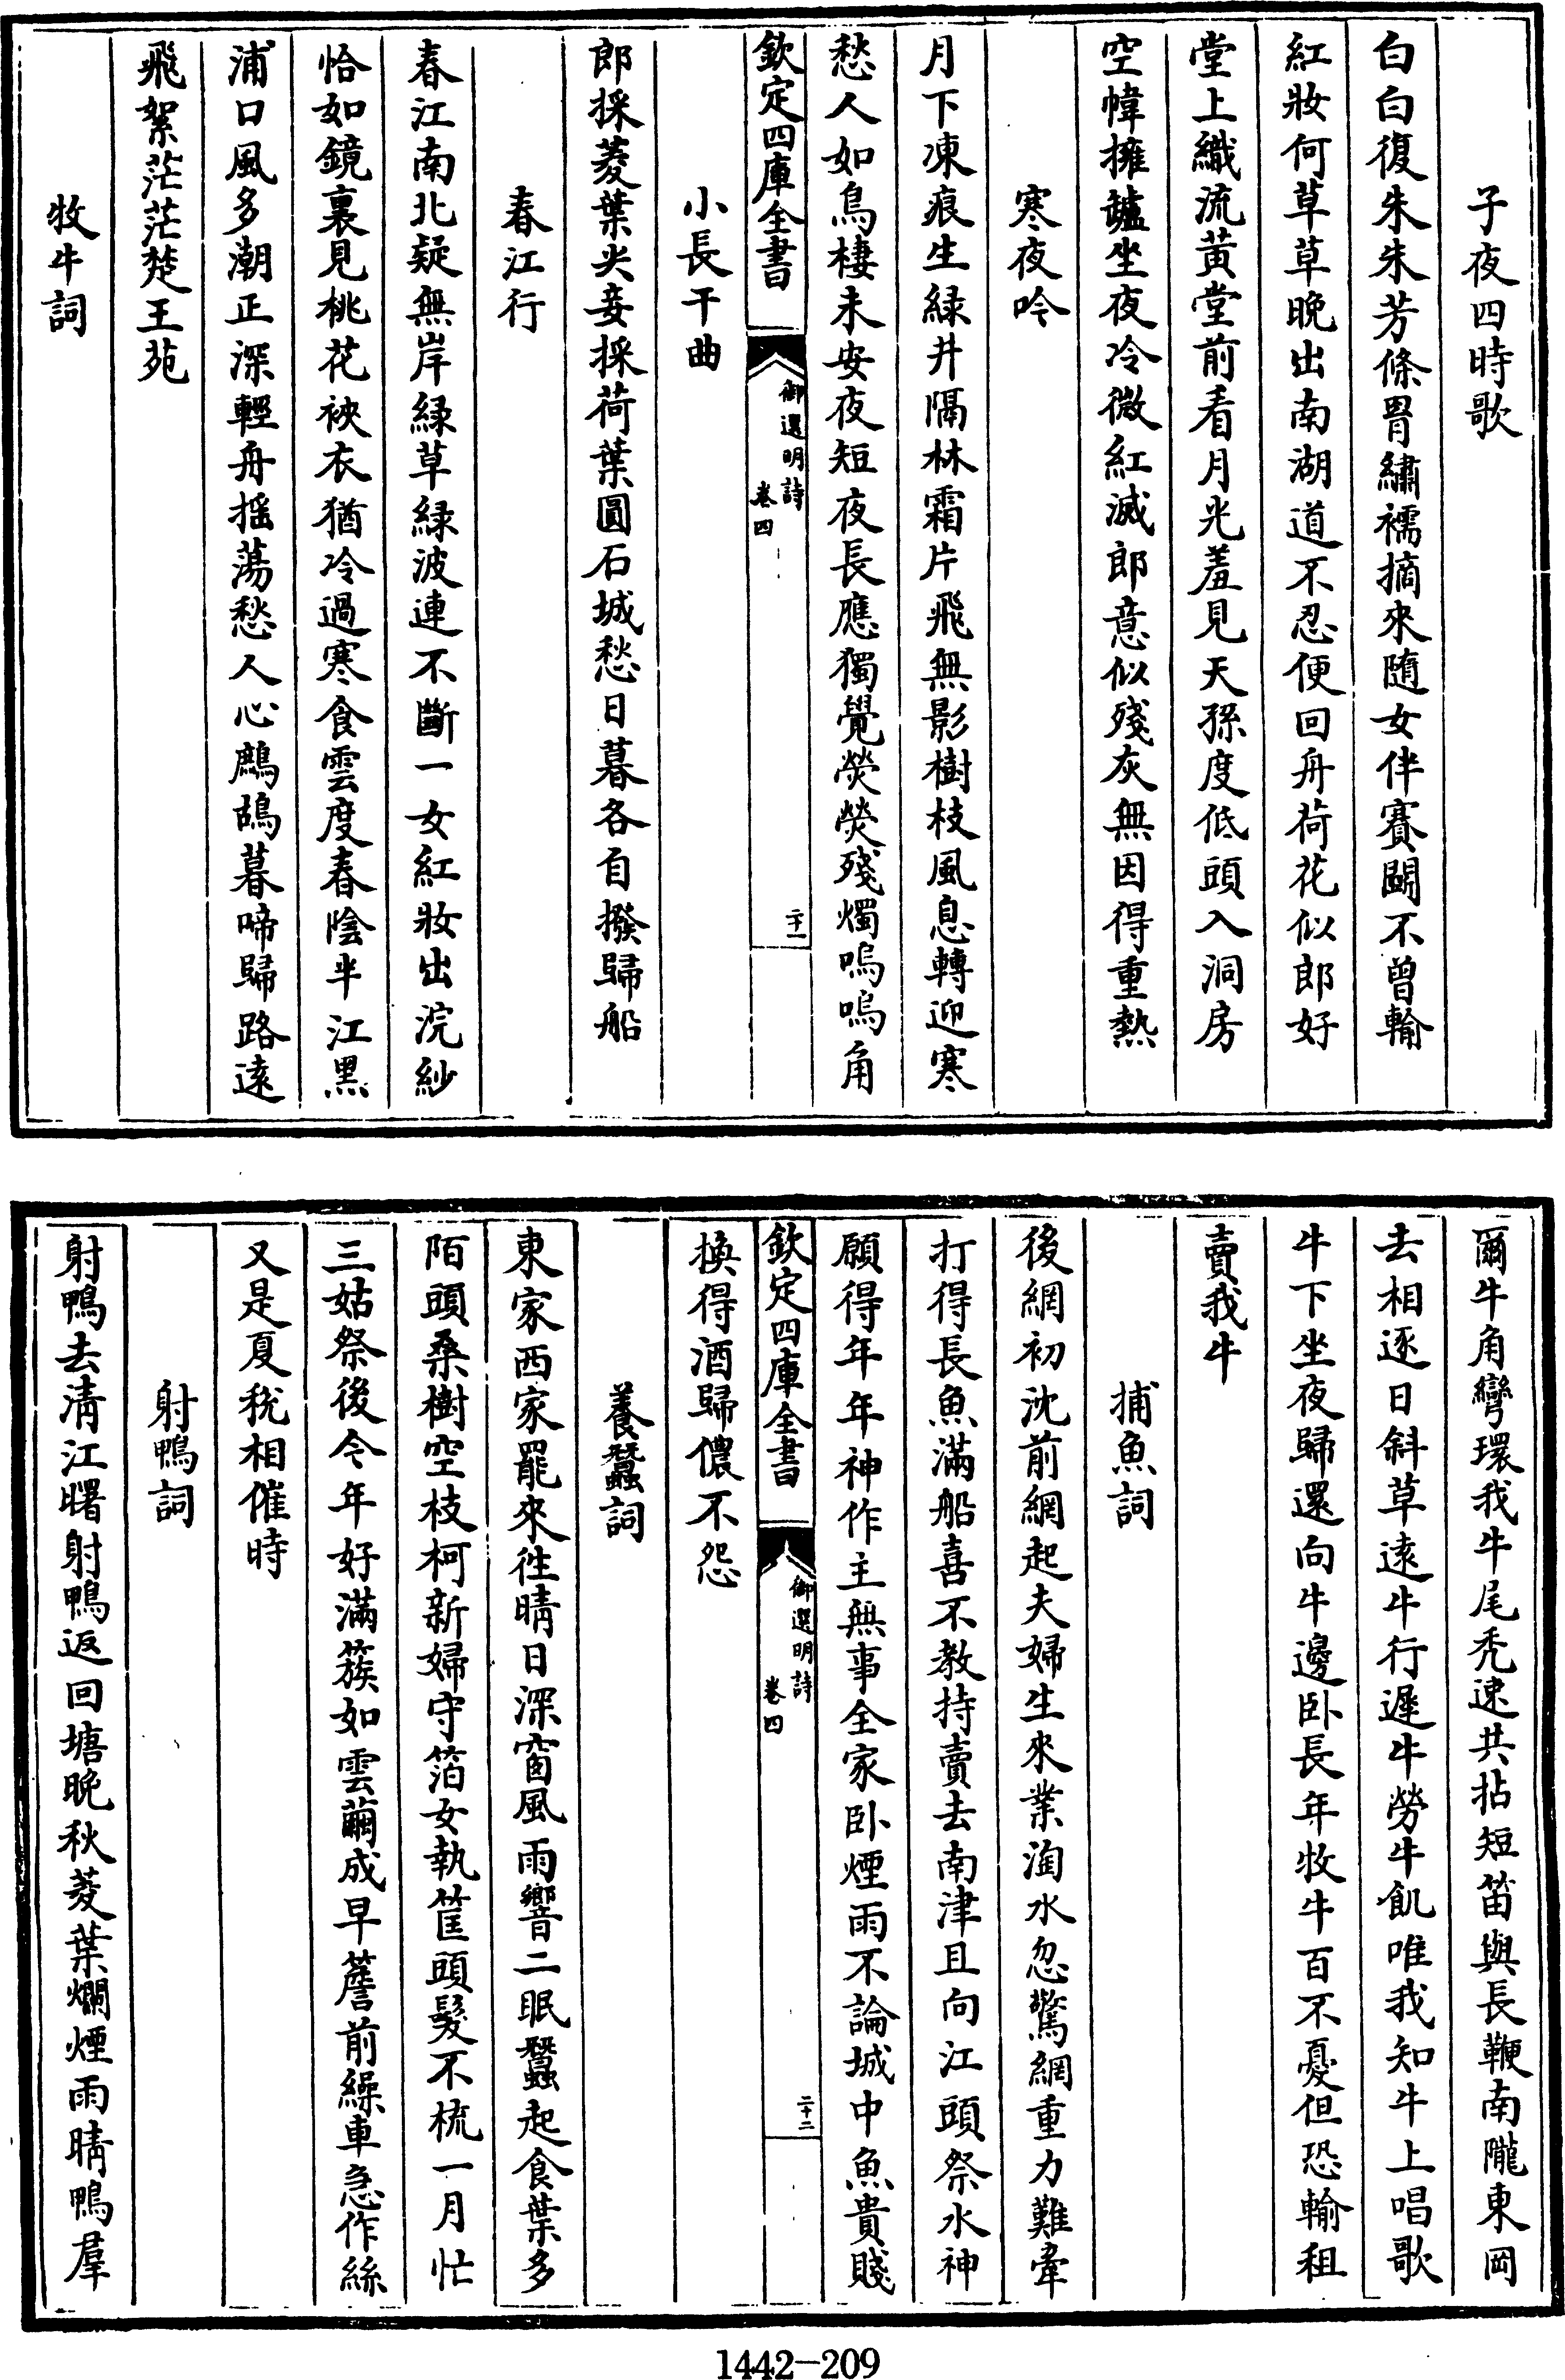 子夜四時歌
白白復朱朱芳條罥繡襦摘來隨女伴賽鬭不曾輸
紅妝何草草晚出南湖道不忍便回舟荷花似郎好
堂上織流黃堂前看月光羞見天孫度低頭入洞房
空幃擁爐坐夜冷微紅滅郎意似殘灰無因得重熱
寒夜吟
月下凍痕生緑井隔林霜片飛無影樹枝風息轉迎寒
愁人如鳥棲未安夜短夜長應獨覺熒熒殘燭嗚嗚角
欽定四庫全書
御選明詩
卷四
二十一
小長干曲
郎採菱葉尖妾採荷葉圓石城愁日暮各自撥歸船
春江行
春江南北疑無岸緑草緑波連不斷一女紅妝出浣紗
恰如鏡裏見桃花裌衣猶冷過寒食雲度春陰半江黑
浦口風多潮正深輕舟摇蕩愁人心鷓鴣暮啼歸路遠
飛絮茫茫楚王苑
牧牛詞
爾牛角彎環我牛尾秃速共拈短笛與長鞭南隴東岡
去相逐日斜草遠牛行遲牛勞牛飢唯我知牛上唱歌
牛下坐夜歸還向牛邊卧長年牧牛百不憂但恐輸租
賣我牛
捕魚詞
後網初沈前網起夫婦生來業淘水忽驚網重力難牽
打得長魚滿船喜不教持賣去南津且向江頭祭水神
願得年年神作主無事全家卧煙雨不論城中魚貴賤
欽定四庫全書
御選明詩
卷四
二十二
換得酒歸儂不怨
養蠶詞
東家西家罷來徃晴日深窗風雨響二眠蠶起食葉多
陌頭桑樹空枝柯新婦守箔女執筐頭髮不梳一月忙
三姑祭後今年好滿簇如雲繭成早簷前繰車急作絲
又是夏税相催時
射鴨詞
射鴨去清江曙射鴨返回塘晚秋菱葉爛煙雨晴鴨羣
1442-209